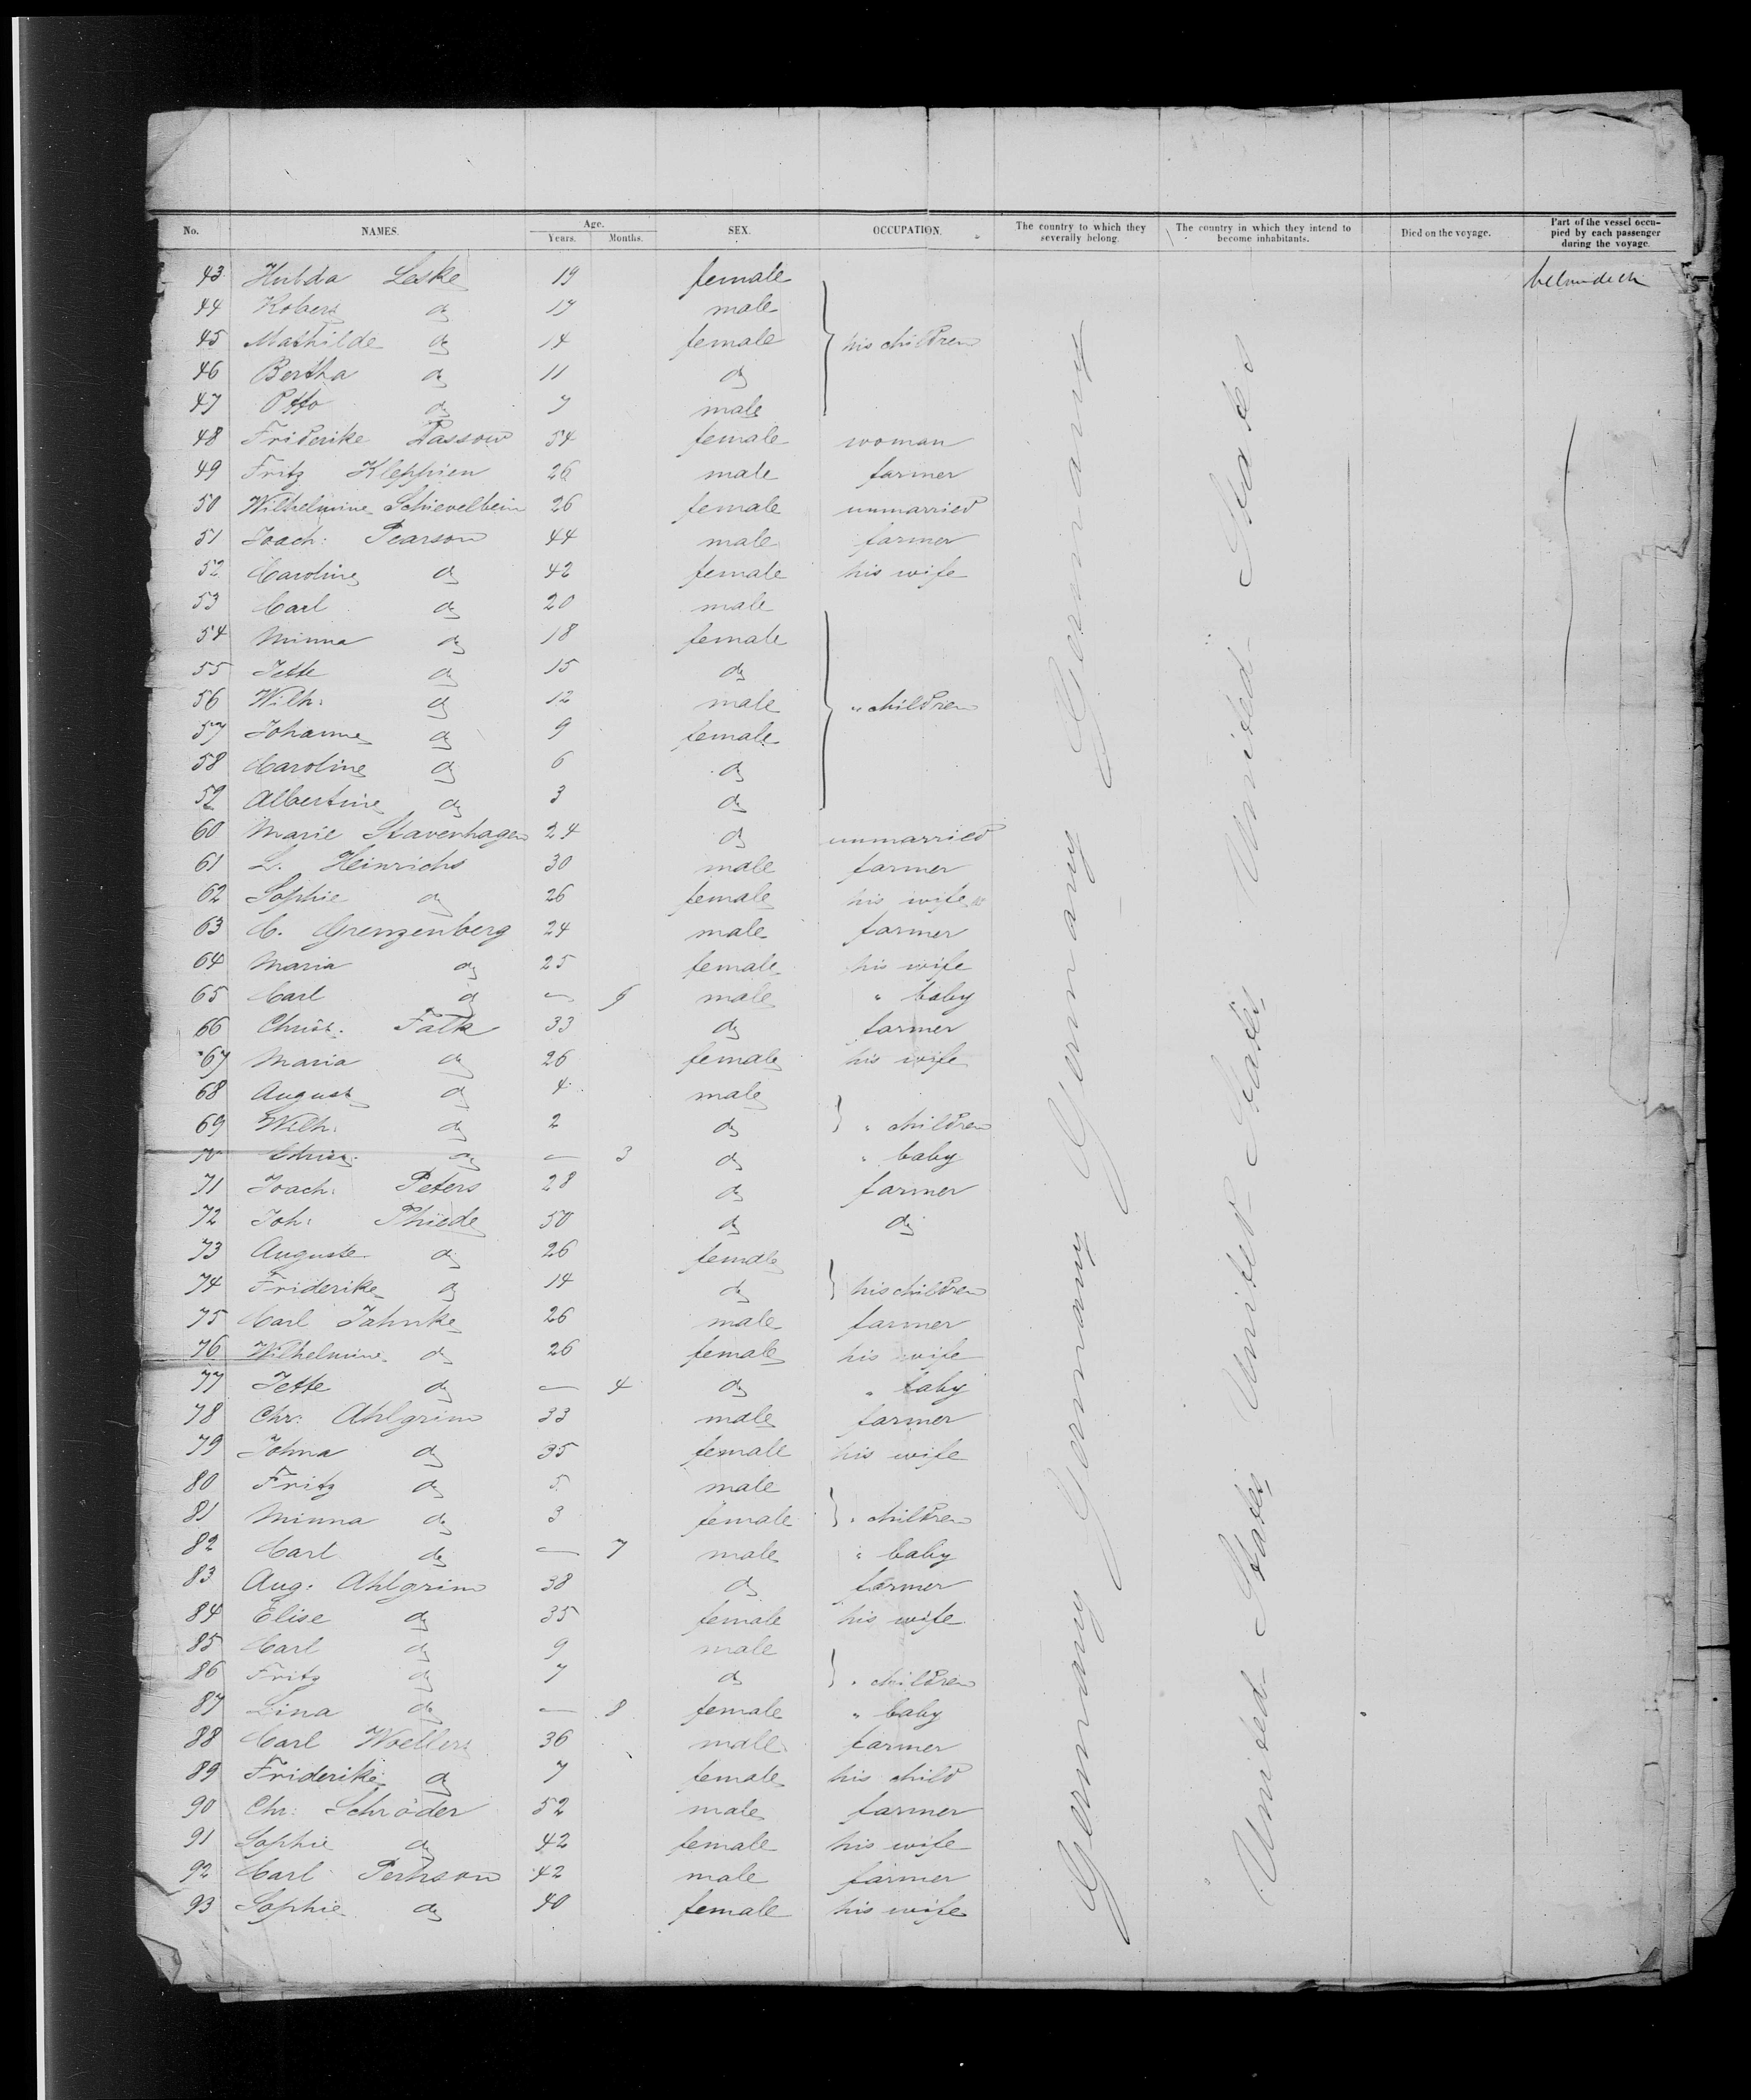 No. NAMES. Age. Years. Months. SEX. OCCUPATION. The country to which they severally belong. The country in which they intend to become inhabitants. Died on the voyage. Part of the vessel occupied by each passenger during the voyage.
43 Hulda Leske 19 female
44 Robert do 17 male
45 Mathilde do 14 female his children
46 Bertha do 11 do
47 Otto do 7 male
48 Friderike Passow 54 female woman
49 Fritz Kleppien 26 male farmer
50 Wilhelmine Schievelbein 26 female unmarried
51 Joach: Pearson 44 male farmer
52 Caroline do 42 female his wife
53 Carl do 20 male
54 Minna do 18 female
55 Jette do 15 do
56 Wilh: do 12 male " children
57 Johanne do 9 female
58 Caroline do 6 do
59 Albertine do 3 do
60 Marie Stavenhagen 24 do unmarried
61 L. Heinrichs 30 male farmer
62 Sophie do 26 female his wife
63 C. Grenzenberg 24 male farmer
64 Maria do 25 female his wife
65 Carl do — male " baby
66 Christ. Falk 33 do farmer
67 Maria do 26 female his wife
68 August do 4 male
69 Wilh: do 2 do " children
70 do — 3 do " baby
71 Joach: Peters 28 do farmer
72 Joh: Thiede 50 do do
73 Auguste do 26 female
74 Friderike do 14 do his children
75 Carl Jahnke 26 male farmer
76 Wilhelmine do 26 female his wife
77 Jette do — 4 do " baby
78 Chr: Ahlgrim 33 male farmer
79 Johna do 35 female his wife
80 Fritz do 5 male
81 Minna do 3 female " children
82 Carl do — 7 male " baby
83 Aug: Ahlgrim 38 do farmer
84 Elise do 35 female his wife
85 Carl do 9 male
86 Fritz do 7 do " children
87 Lina do — 8 female " baby
88 Carl Woellers 36 male farmer
89 Friderike do 7 female his child
90 Chr: Schröder 52 male farmer
91 Sophie do 42 female his wife
92 Carl Pershson 42 male farmer
93 Sophie do 40 female his wife
Germany Germany Germany Germany Germany
United States United States United States